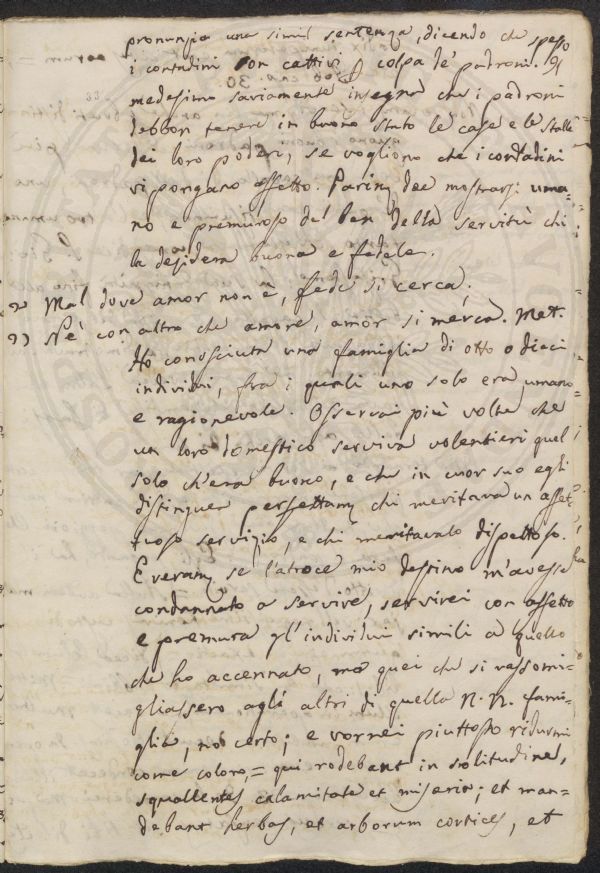 pronunzia una simil sentenza, dicendo che spesso
i contadini son cattivi p colpa de' padroni. Gl
medesimo saviamente insegna che i padroni
debbon tenere in buono stato le case e le stalle
dei loro poderi, se vogliono che i contadini
vi pongano affetto. Parimte dee mostrarsi uma=
no e premuroso de' ben della servitù chi
la desidera buona e fedele.
" Mal dove amor non è, fede si cerca.
" Nè con altro che amore, amor si merca. Met.
Ho conosciuta una famiglia di otto o dieci
individui, fra i quali uno solo era umano
e ragionevole. Osservai più volte che
un loro domestico serviva volentieri quel
solo ch'era buono, e che in cuor suo egli
distinguea perfettamte chi meritava un affet=
tuoso servizio, e chi meritavalo dispettoso.
E veramte se l'atroce mio destino m'avesse
condannato a servire, servirei con affetto
e premura gl'individui simili a quello
che ho accennato, ma quei che si rassomi=
gliassero agli altri di quella N. N. fami=
glia, no certo; e vorrei piuttosto ridurmi
come coloro, = qui rodebant in solitudine,
squallentes calamitate et miseria; et man=
debant herbas, et arborum cortices, et